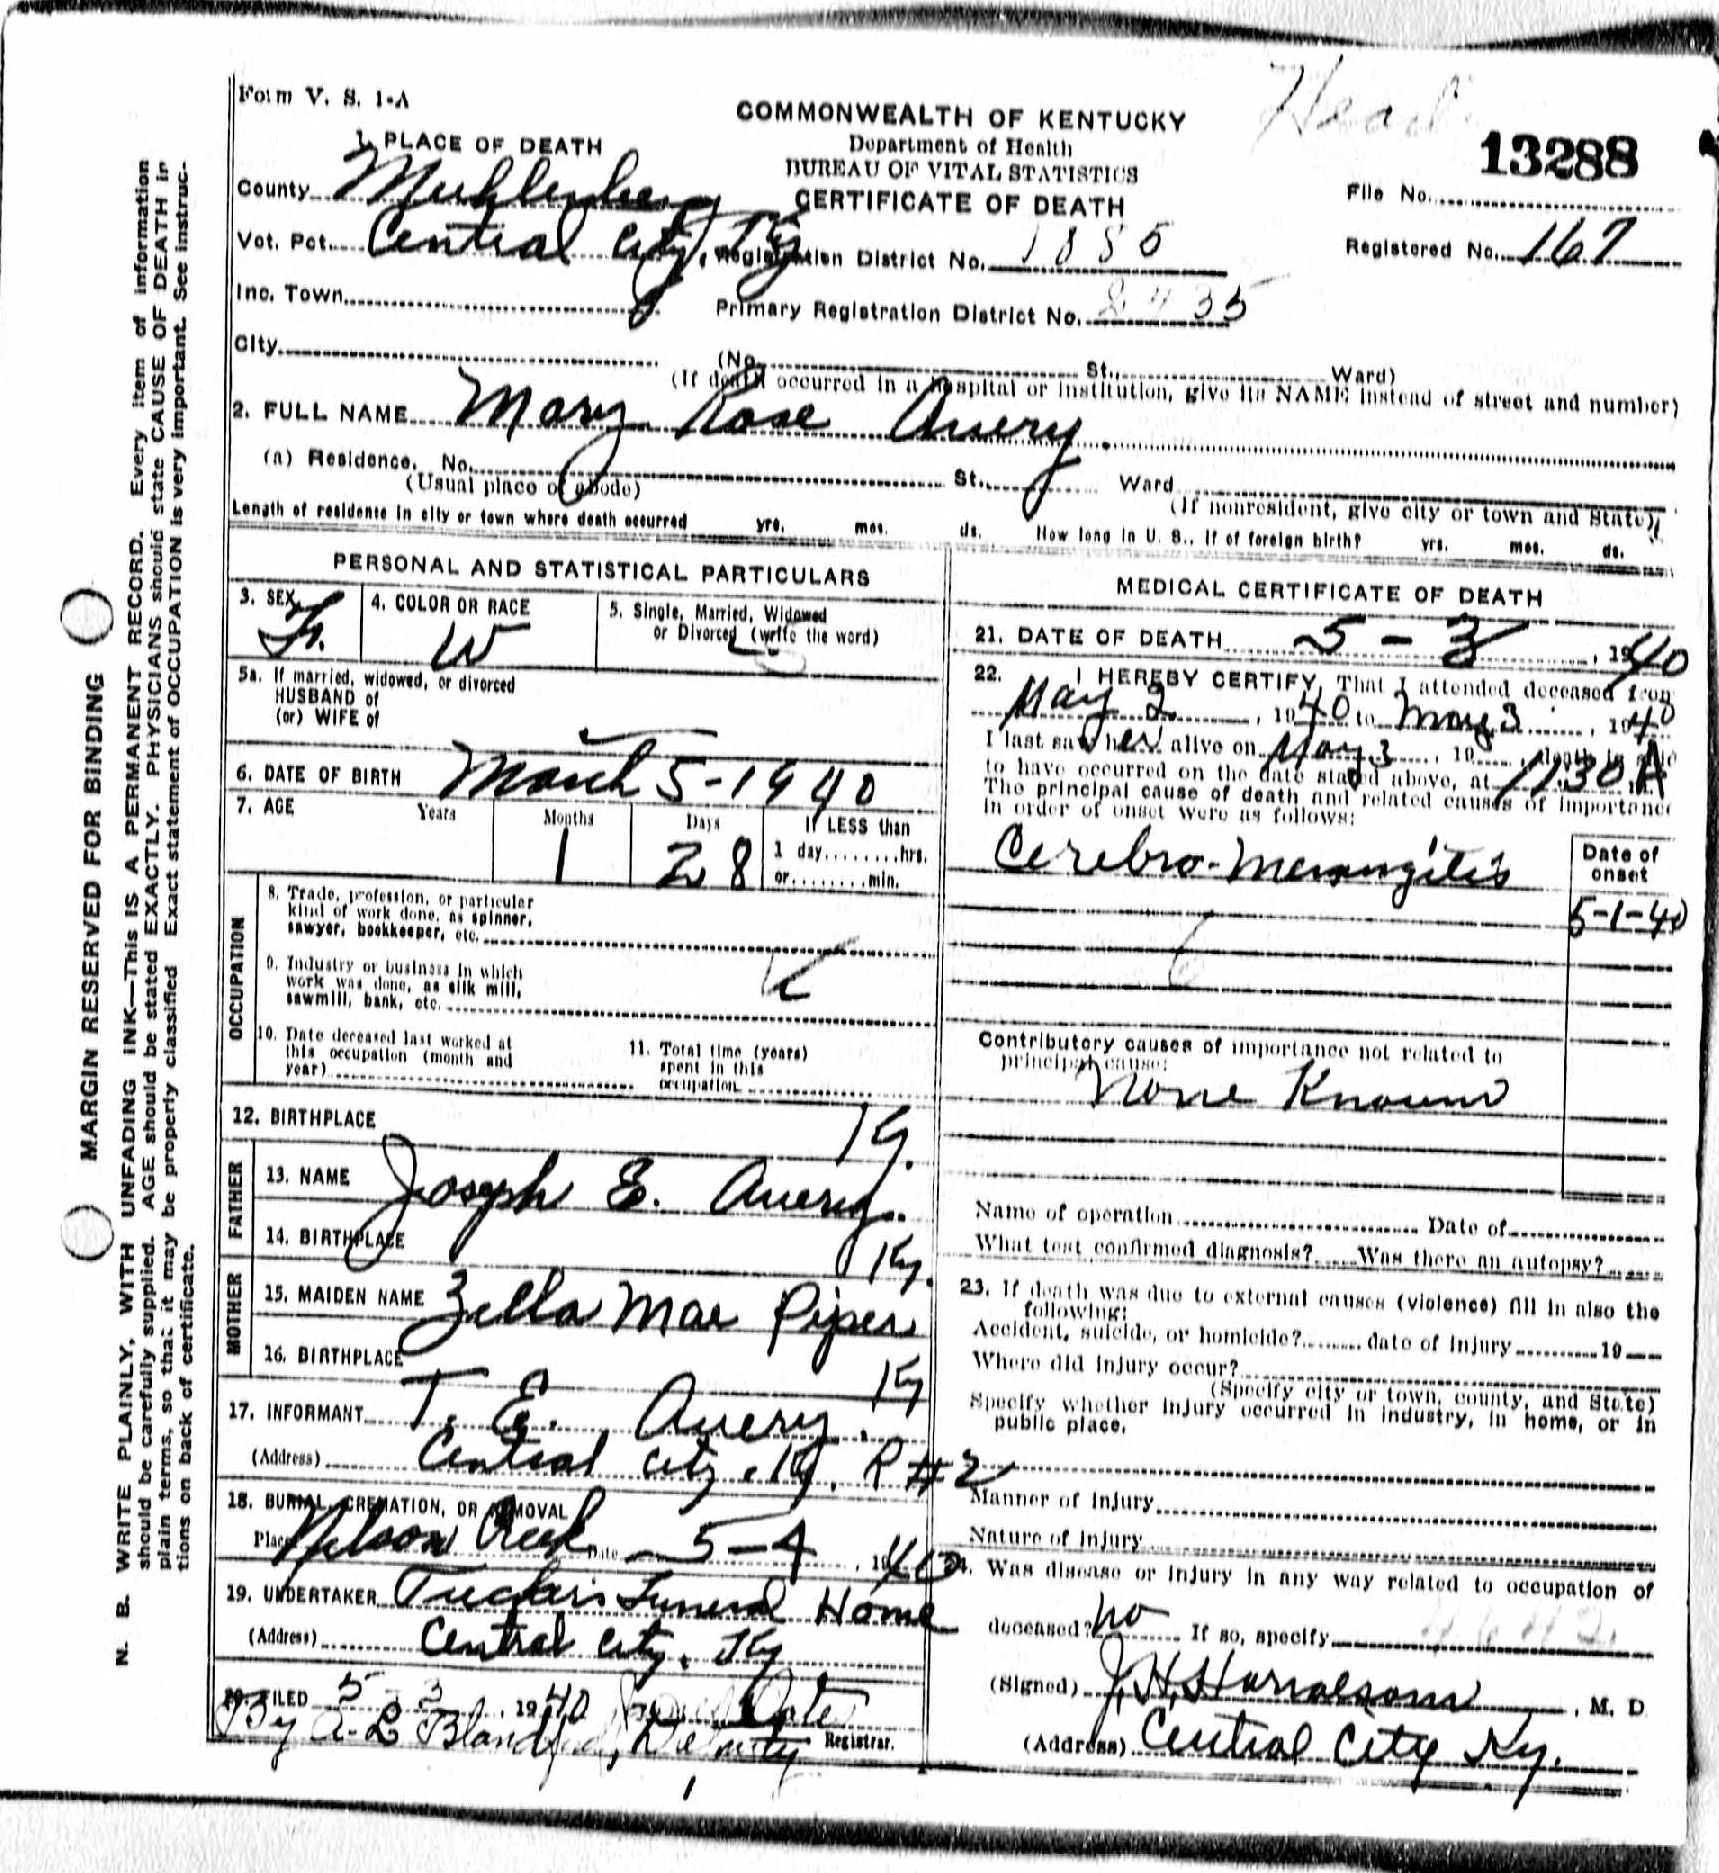 Form V. S. 1-A
COMMONWEALTH OF KENTUCKY
Department of Health
BUREAU OF VITAL STATISTICS
CERTIFICATE OF DEATH
13288
File No.
Registered No. 167
1. PLACE OF DEATH
County Muhlenberg
Vot. Pct. Central City, Ky
Registration District No. 1885
Inc. Town
Primary Registration District No. 2435
City (No. St., Ward)
(If death occurred in a hospital or institution, give its NAME instead of street and number)
2. FULL NAME Mary Rose Avery
(a) Residence. No. St., Ward
(Usual place of abode) (If nonresident, give city or town and State)
Length of residence in city or town where death occurred yrs. mos. ds. How long in U. S., if of foreign birth? yrs. mos. ds.
PERSONAL AND STATISTICAL PARTICULARS
3. SEX F. 4. COLOR OR RACE W 5. Single, Married, Widowed
or Divorced (write the word) S
5a. If married, widowed, or divorced
HUSBAND of
(or) WIFE of
6. DATE OF BIRTH March 5-1940
7. AGE Years Months Days If LESS than
1 28 1 day........hrs.
or........min.
OCCUPATION
8. Trade, profession, or particular
kind of work done, as spinner,
sawyer, bookkeeper, etc.
9. Industry or business in which
work was done, as silk mill,
sawmill, bank, etc.
10. Date deceased last worked at
this occupation (month and
year)
11. Total time (years)
spent in this
occupation
12. BIRTHPLACE Ky.
FATHER
13. NAME Joseph E. Avery
14. BIRTHPLACE Ky.
MOTHER
15. MAIDEN NAME Zella Mae Piper
16. BIRTHPLACE Ky
17. INFORMANT T. E. Avery
(Address) Central City, Ky. R #2
18. BURIAL, CREMATION, OR REMOVAL
Place Nelson Creek Date 5-4, 1940
19. UNDERTAKER Tucker's Funeral Home
(Address) Central City, Ky
20. FILED 5-3, 1940
By A. L. Blandford, Deputy Registrar.
MEDICAL CERTIFICATE OF DEATH
21. DATE OF DEATH 5-3, 1940
22. I HEREBY CERTIFY, That I attended deceased from
May 2, 1940 to May 3, 1940
I last saw her alive on May 3, 19 , death is said
to have occurred on the date stated above, at 1130 A m.
The principal cause of death and related causes of importance
in order of onset were as follows:
Date of
onset
Cerebro-Meningitis
5-1-40
Contributory causes of importance not related to
principal cause:
None Known
Name of operation Date of
What test confirmed diagnosis? Was there an autopsy?
23. If death was due to external causes (violence) fill in also the
following:
Accident, suicide, or homicide? date of injury 19
Where did injury occur?
(Specify city or town, county, and State)
Specify whether injury occurred in industry, in home, or in
public place.
Manner of Injury
Nature of Injury
24. Was disease or injury in any way related to occupation of
deceased? No If so, specify
(Signed) J. H. Harralson, M. D
(Address) Central City Ky.
MARGIN RESERVED FOR BINDING
N. B. WRITE PLAINLY, WITH UNFADING INK—This IS A PERMANENT RECORD. Every item of information
should be carefully supplied. AGE should be stated EXACTLY. PHYSICIANS should state CAUSE OF DEATH in
plain terms, so that it may be properly classified. Exact statement of OCCUPATION is very important. See instruc-
tions on back of certificate.